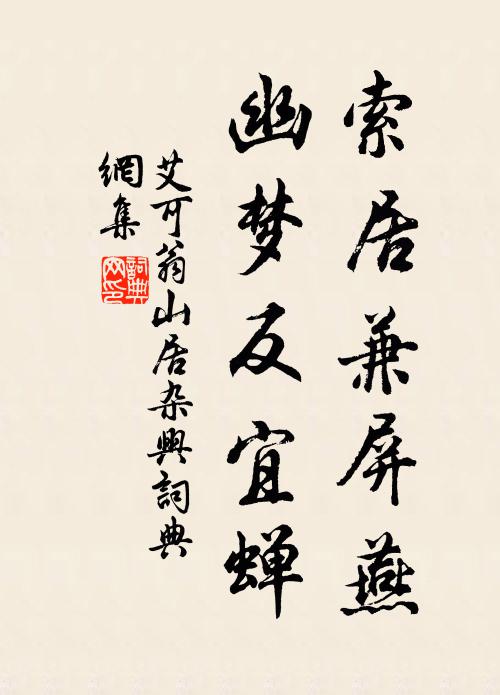 索居兼屏燕
幽梦反宜蝉
艾可翁山居杂興詞典
網集
詞典网印